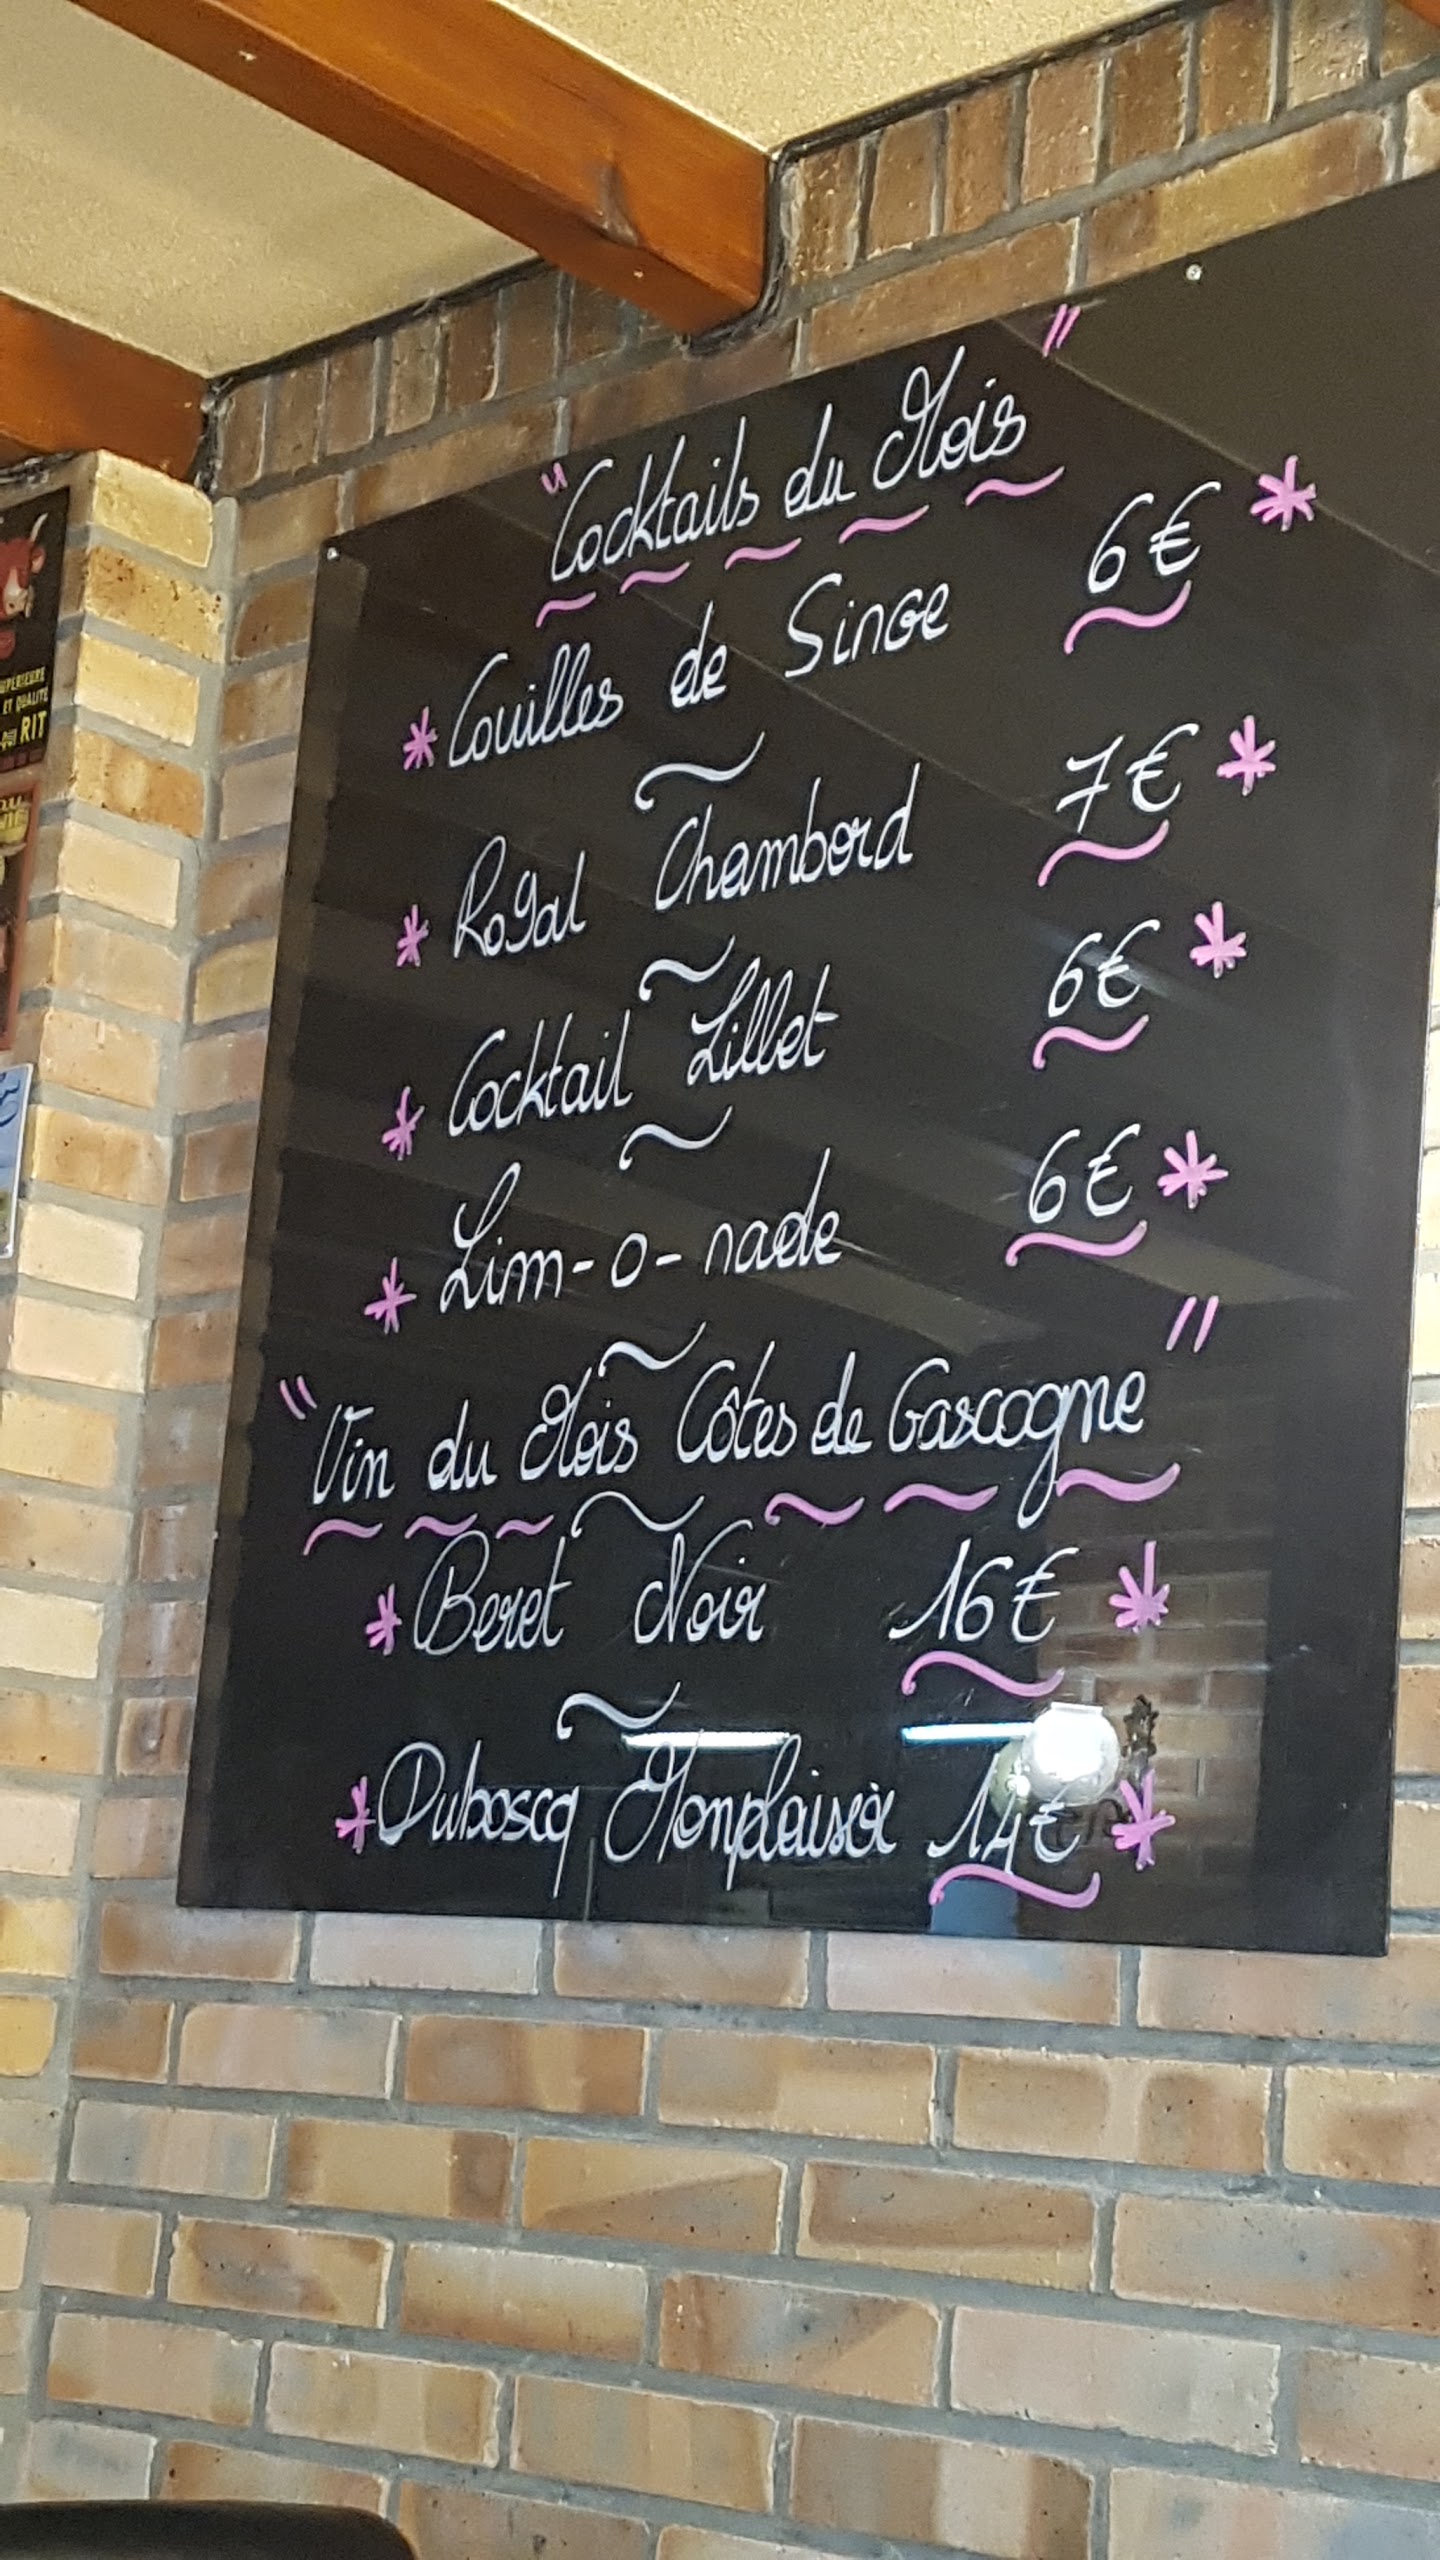 "Cocktails du Mois"
* Couilles de Singe 6€ *
* Royal Chambord 7€ *
* Cocktail Lillet 6€ *
* Lim-o-nade 6€ *
"Vin du Mois Côtes de Gascogne"
* Beret Noir 16€ *
* Duboscq Monplaisir 14€ *
ET QUALITÉ
RIT